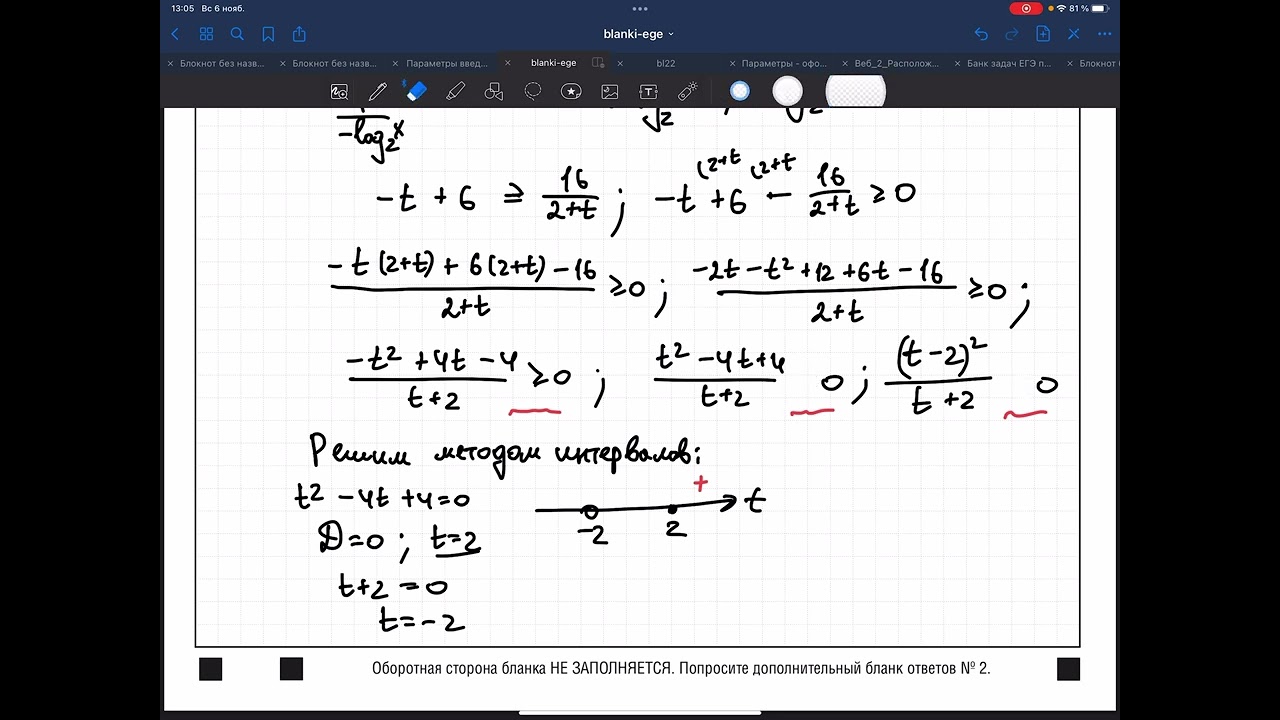 13:05 Вс 6 нояб.
81 %
blanki-ege
Блокнот без назв... Блокнот без назв... Параметры введ... blanki-ege bl22 Параметры - офо... Веб_2_Располож... Банк задач ЕГЭ п... Блокнот б
-log₂x
(2+t (2+t
-t + 6 ≥ 16/(2+t) ; -t + 6 - 16/(2+t) ≥ 0
(-t(2+t) + 6(2+t) - 16)/(2+t) ≥ 0 ; (-2t - t² + 12 + 6t - 16)/(2+t) ≥ 0 ;
(-t² + 4t - 4)/(t+2) ≥ 0 ; (t² - 4t + 4)/(t+2) 0 ; (t-2)²/(t+2) 0
Решим методом интервалов:
t² - 4t + 4 = 0
+
t
D=0 ; t=2
-2 2
t+2 = 0
t = -2
Оборотная сторона бланка НЕ ЗАПОЛНЯЕТСЯ. Попросите дополнительный бланк ответов № 2.